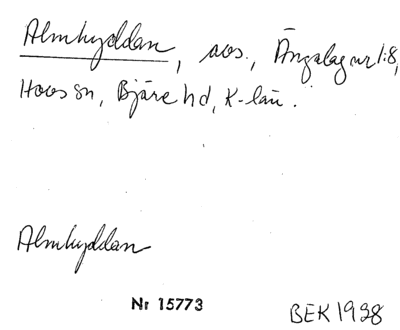 Almhyddan, avs., Ängalag nr 1:8,
Hovs sn, Bjäre hd, K-län.
Almhyddan
Nr 15773
BEK 1938